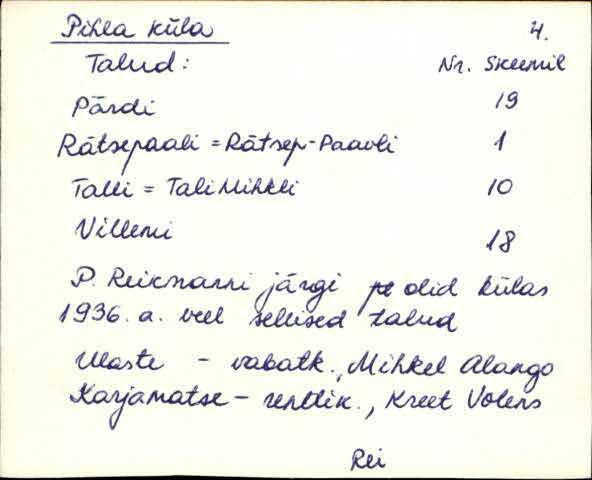 Pihla küla 4.
Talud: Nr. skeemil
Pärdi 19
Rätsepaali = Rätsep-Paavli 1
Talli = Tali Mihkli 10
Villemi 18
P. Reikmanni järgi olid külas
1936. a. veel sellised talud
Ulaste - vabatk., Mihkel Alango
Karjamatse - rentnik., Kreet Volens
Rei